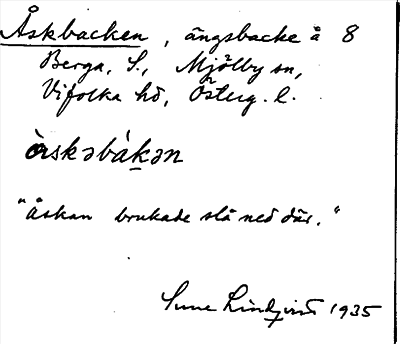 Åskbacken, ängsbacke å 8
Berga, S., Mjölby sn,
Vifolka hd, Österg. l.
òskəbàkən
"Åskan brukade slå ned där."
Sune Lindqvist 1935